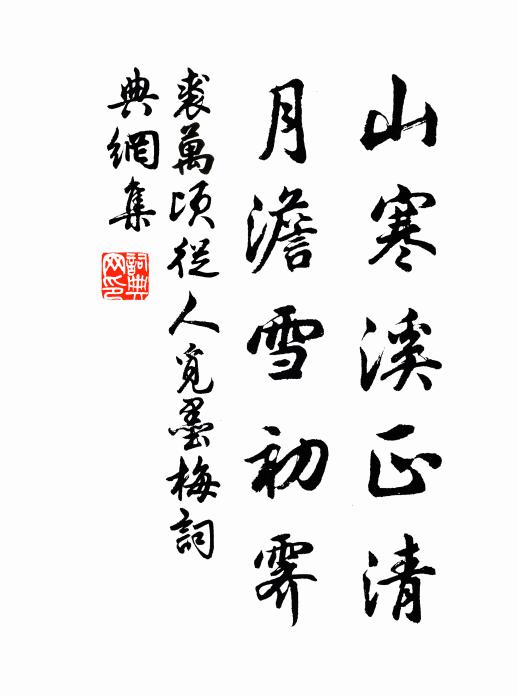 山寒溪正清
月澹雪初霽
裘萬頃從人覓墨梅詞
典網集
詞典
网印